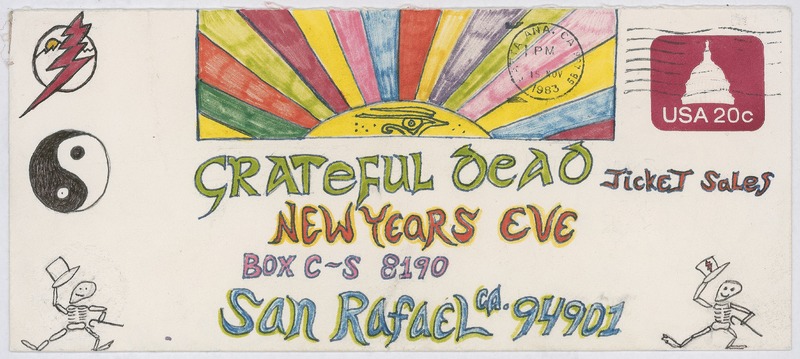 SANTA ANA, CA
PM
15 NOV
1983
USA 20c
GRATEFUL DEAD
TICKET SALES
NEW YEARS EVE
BOX C-S 8190
San RafaeL CA. 94901